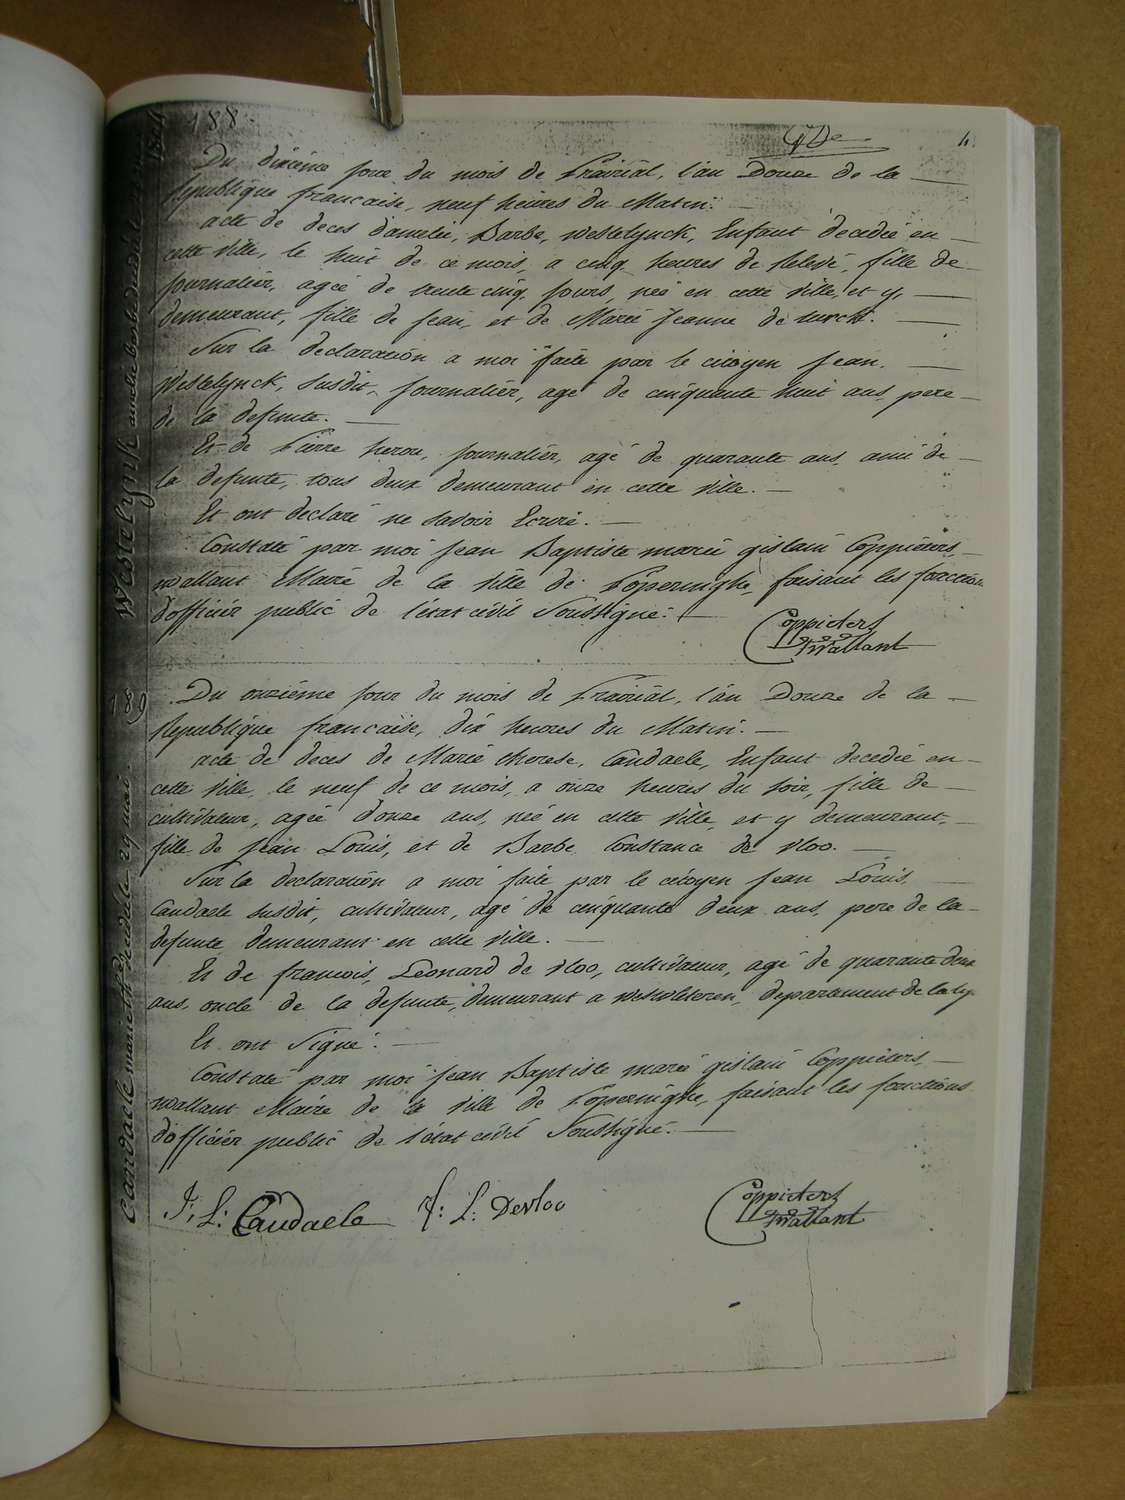 188
4.
Du dixième jour du mois de Prairial, l'an Douze de la
Republique française, neuf heures du Matin.
acte de deces d'amelie, Barbe, Westelynck, Enfant decedée en
cette Ville, le huit de ce mois, a cinq heures de relevé, fille de
journalier, agée de trente cinq jours, née en cette Ville, et y,
demeurant, fille de jean, et de Marie Jeanne de turck.
Sur la declaration a moi faite par le citoyen jean
Westelynck, susdit, journalier, agé de cinquante huit ans, pere
de la defunte.
Et de Pierre herou, journalier, agé de quarante ans, ami de
la defunte, tous deux demeurant en cette Ville.
Et ont declaré ne savoir Ecrire.
Constaté par moi jean Baptiste marie gislain Coppieters
wallant Maire de la Ville de Poperinghe, faisant les fonction
d'officier public de l'état civil Soussigné.
Coppieters
Wallant
Westelynck amelie barbe
189
Du onzième jour du mois de Prairial, l'an Douze de la
Republique française, dix heures du Matin.
acte de deces de Marie therese, Candaele, Enfant decedée en
cette Ville, le neuf de ce mois, a onze heures du soir, fille de
cultivateur, agée douze ans, née en cette Ville, et y demeurant,
fille de jean Louis, et de Barbe Constance de vloo.
Sur la declaration a moi faite par le citoyen jean Louis
Candaele susdit, cultivateur, agé de cinquante deux ans, pere de la
defunte demeurant en cette Ville.
Et de francois, Leonard de vloo, cultivateur, agé de quarante deux
ans, oncle de la defunte, demeurant a westvleteren, departement de la ly
Et ont Signé.
Constaté par moi jean Baptiste marie gislain Coppieters
wallant Maire de la Ville de Poperinghe, faisant les fonctions
d'officier public de l'état civil Soussigné.
Candaele marie th decedé le 29 mai
J: L: Candaele F: L: Devloo
Coppieters
Wallant